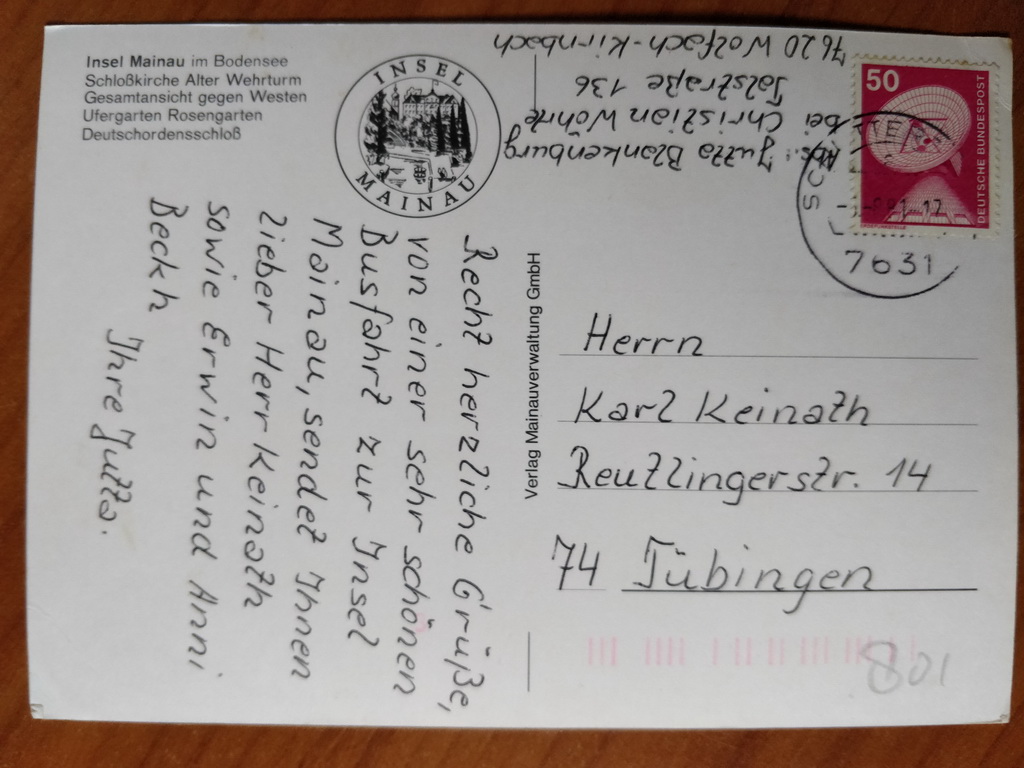 Insel Mainau im Bodensee
Schloßkirche Alter Wehrturm
Gesamtansicht gegen Westen
Ufergarten Rosengarten
Deutschordensschloß
INSEL
MAINAU
Abs. Jutta Blankenburg
bei Christian Wöhrle
Talstraße 136
7620 Wolfach-Kirnbach
50
DEUTSCHE BUNDESPOST
7631
Recht herzliche Grüße,
von einer sehr schönen
Busfahrt zur Insel
Mainau, sendet Ihnen
lieber Herr Keinath
sowie Erwin und Anni
Beckh
Ihre Jutta.
Verlag Mainauverwaltung GmbH
Herrn
Karl Keinath
Reutlingerstr. 14
74 Tübingen
801